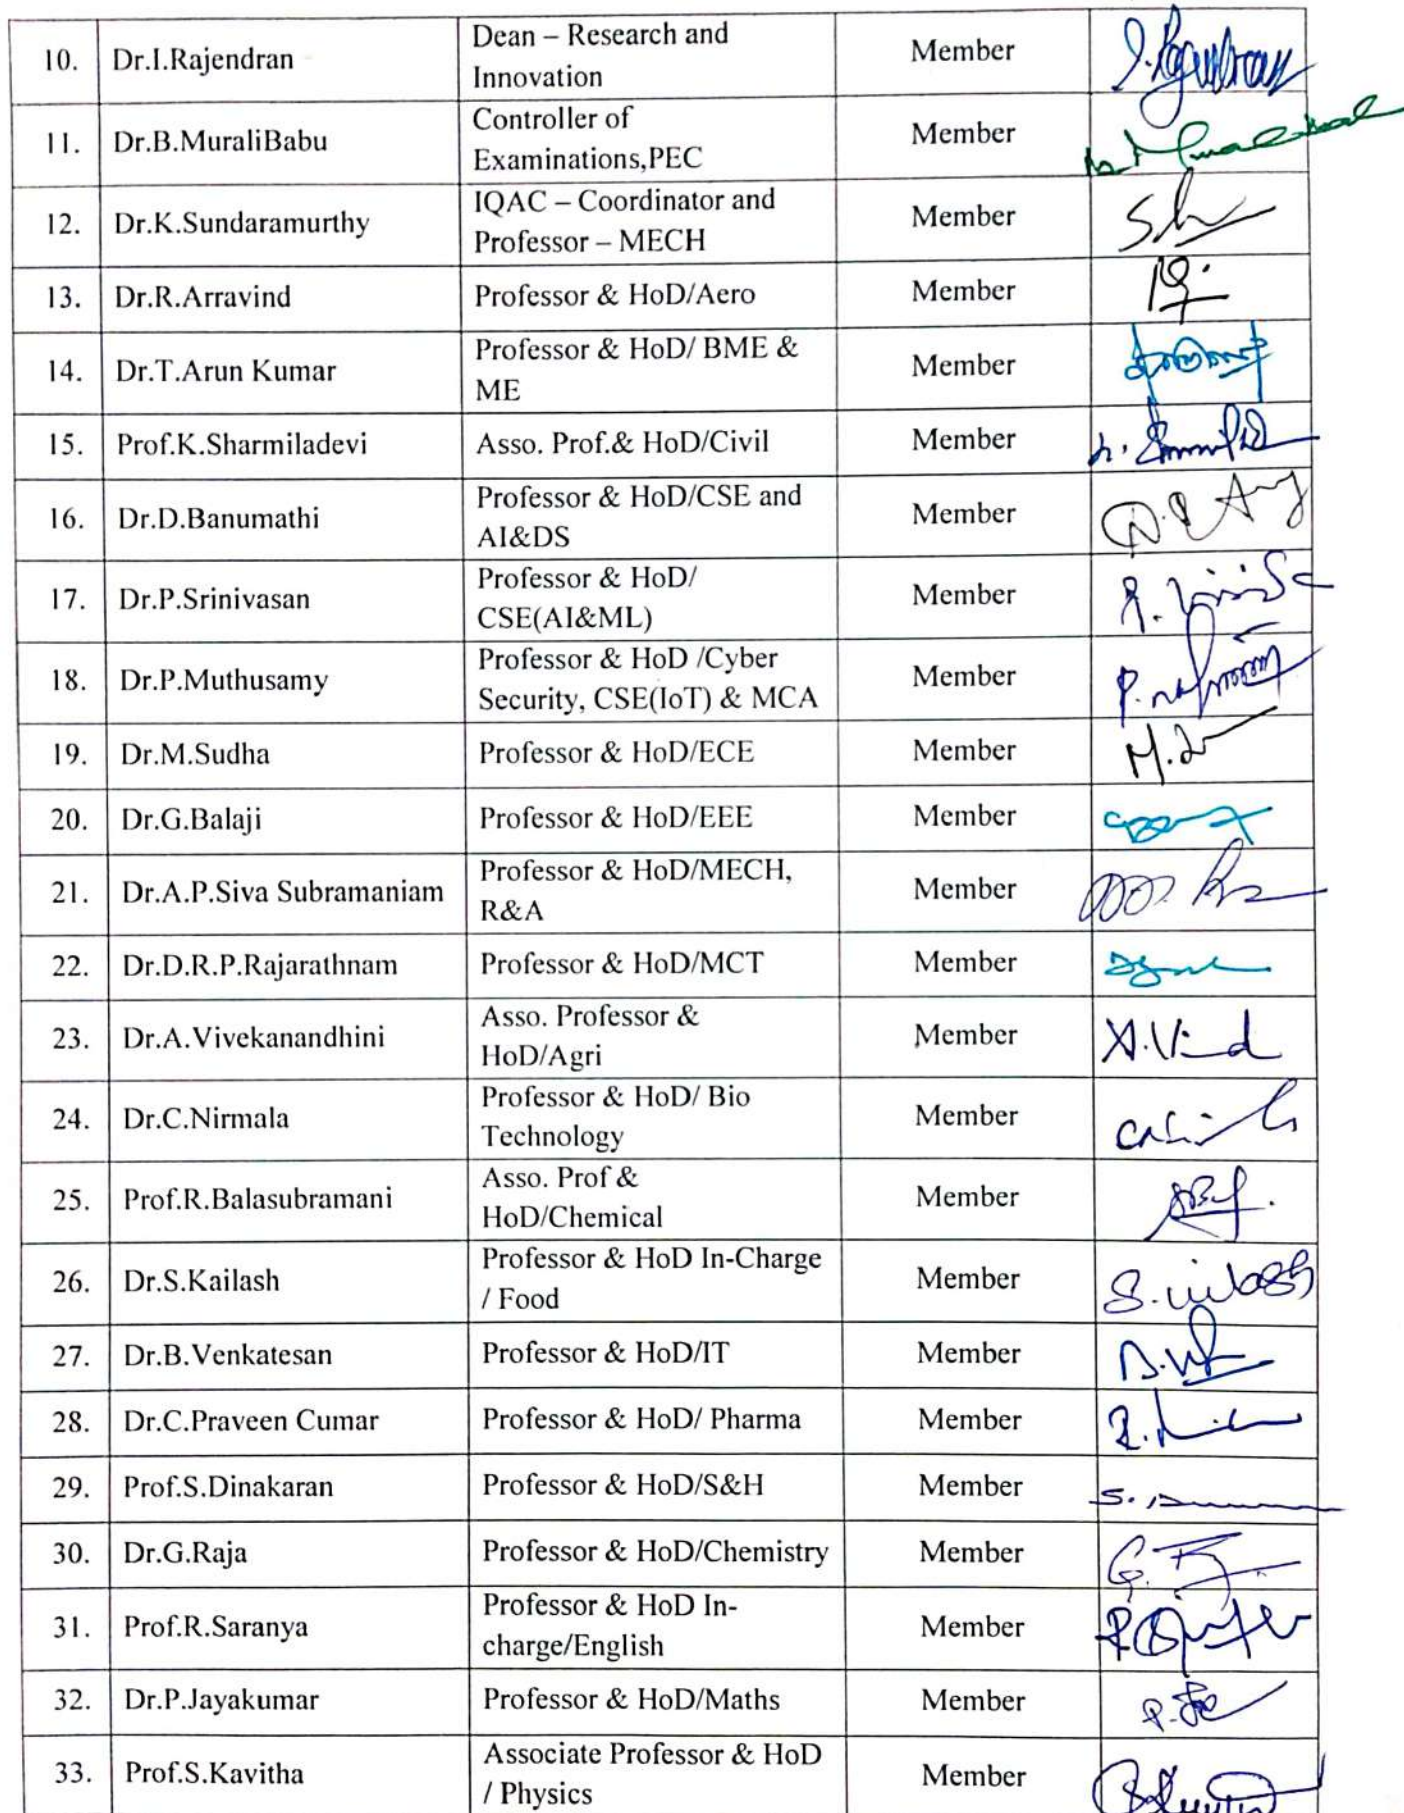 10. Dr.I.Rajendran Dean – Research and Member
Innovation
11. Dr.B.MuraliBabu Controller of Member
Examinations,PEC
12. Dr.K.Sundaramurthy IQAC – Coordinator and Member
Professor – MECH
13. Dr.R.Arravind Professor & HoD/Aero Member
14. Dr.T.Arun Kumar Professor & HoD/ BME & Member
ME
15. Prof.K.Sharmiladevi Asso. Prof.& HoD/Civil Member
16. Dr.D.Banumathi Professor & HoD/CSE and Member
AI&DS
17. Dr.P.Srinivasan Professor & HoD/ Member
CSE(AI&ML)
18. Dr.P.Muthusamy Professor & HoD /Cyber Member
Security, CSE(IoT) & MCA
19. Dr.M.Sudha Professor & HoD/ECE Member
20. Dr.G.Balaji Professor & HoD/EEE Member
21. Dr.A.P.Siva Subramaniam Professor & HoD/MECH, Member
R&A
22. Dr.D.R.P.Rajarathnam Professor & HoD/MCT Member
23. Dr.A.Vivekanandhini Asso. Professor & Member
HoD/Agri
24. Dr.C.Nirmala Professor & HoD/ Bio Member
Technology
25. Prof.R.Balasubramani Asso. Prof & Member
HoD/Chemical
26. Dr.S.Kailash Professor & HoD In-Charge Member
/ Food
27. Dr.B.Venkatesan Professor & HoD/IT Member
28. Dr.C.Praveen Cumar Professor & HoD/ Pharma Member
29. Prof.S.Dinakaran Professor & HoD/S&H Member
30. Dr.G.Raja Professor & HoD/Chemistry Member
31. Prof.R.Saranya Professor & HoD In- Member
charge/English
32. Dr.P.Jayakumar Professor & HoD/Maths Member
33. Prof.S.Kavitha Associate Professor & HoD Member
/ Physics